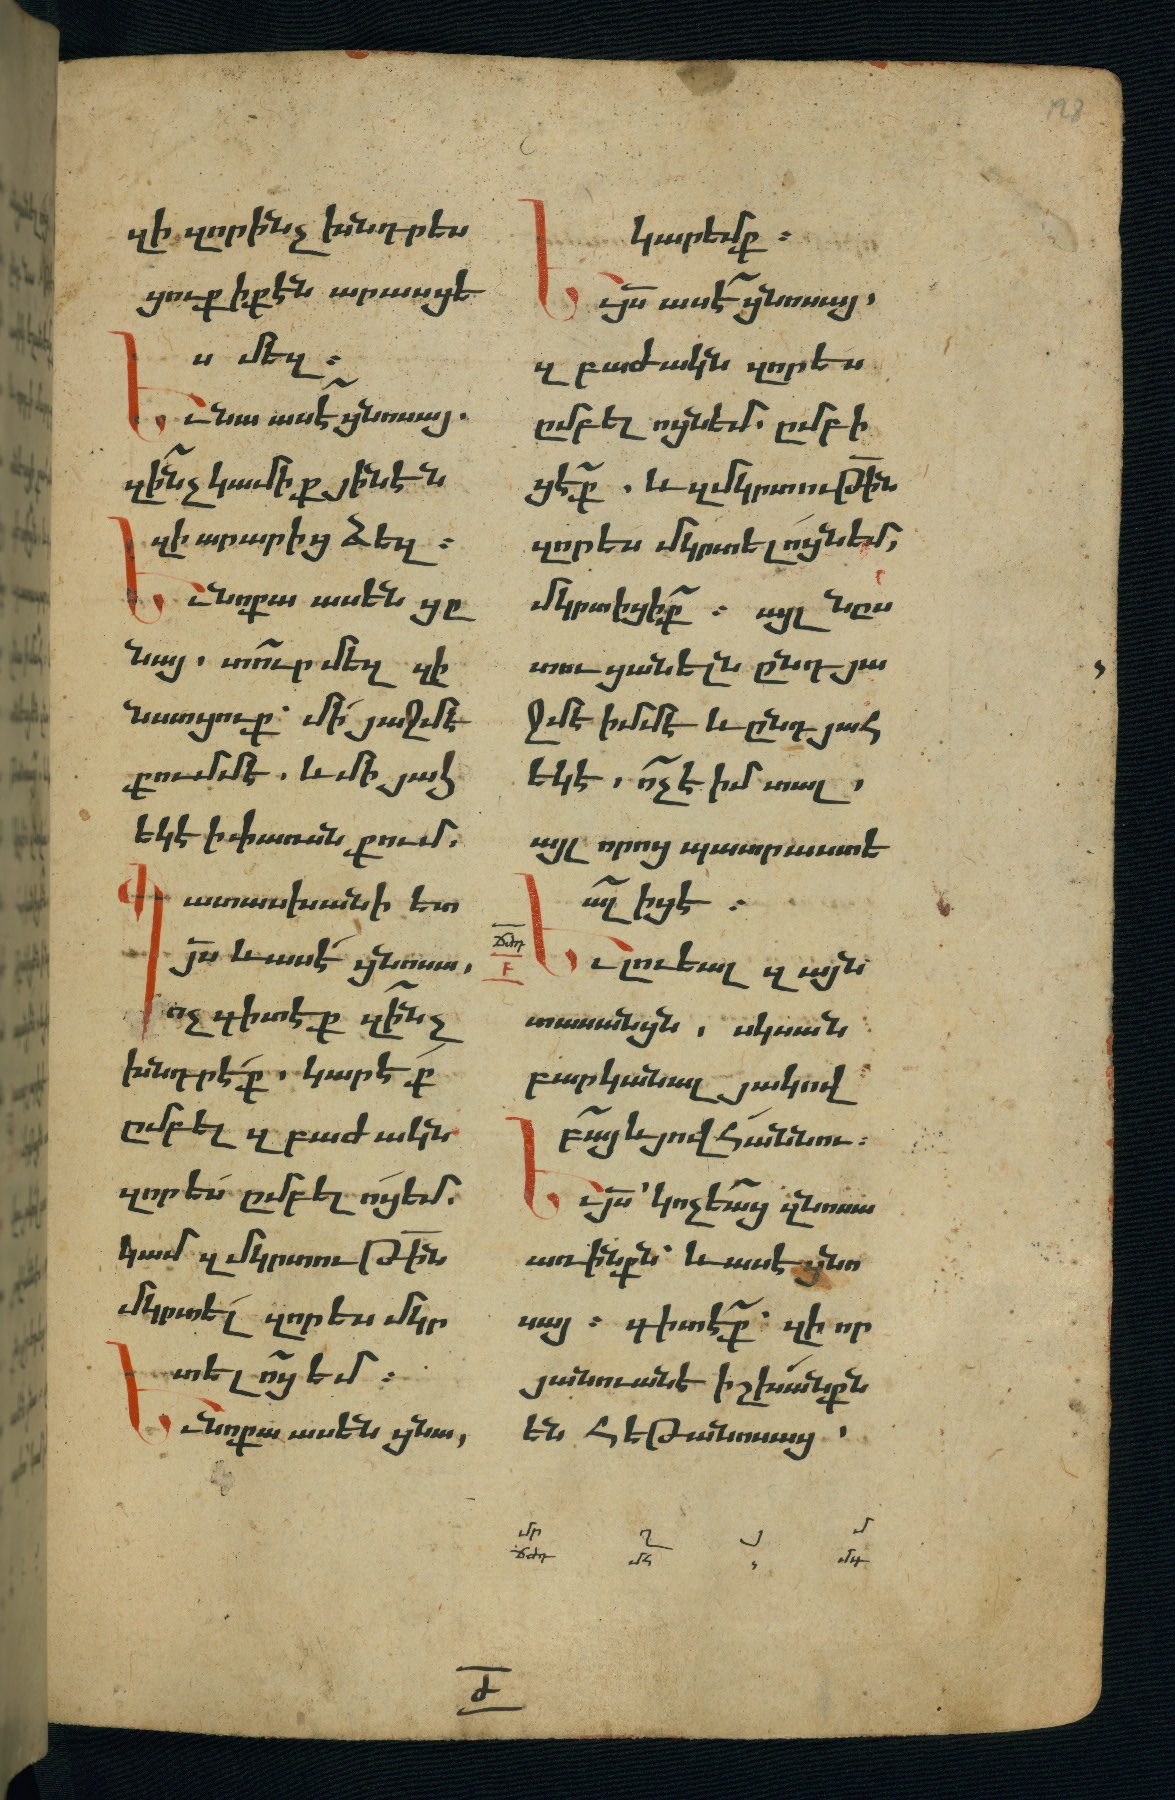 զի զորինչ խնդրես
ցուք ի քէն արասցե
ս մեզ ։
Եւ նա ասէ՜ ցնոսայ.
զի՜նչ կամիք յինէն
զի արարից ձեզ ։
Եւ նոքա ասեն ցը
նայ, տո՜ւր մեզ զի
նստցուք՝ մի՛ յաջմէ
քումմէ, և մի յահ
եկէ ի փառսն քում.
Պատասխանի ետ
յս̅ և ասէ՛ ցնոսա,
ոչ գիտէք զի՜նչ
խնդրէ՛ք, կարէ՛ք
ըմբել զբաժակն
զորես ըմբել ո՛ցեմ.
կամ զմկրտութի̅ն
մկրտել զորես մկր
տել ո՜ց եմ ։
Եւ նոքա ասեն ցնա,
կարեմք ։
Եւ յս̅ ասէ՜ ցնոսայ,
զբաժակն զորես
ըմբել ոցնեմ. ըմբի
ցէ՜ք, և զմկրտութի̅ն
զորես մկրտել ո՛ցնեմ,
մկրտիցի՜ք ։ այլ նըս
տուցանելն ընդ յա
ջմէ իմմէ և ընդ յահ
եկէ, ո՜չ է իմ տալ,
այլ որոց պատրաստե
ա՜լ իցէ ։
Եւ լուեալ զայն
տասանցն, սկսան
բարկանալ յակով
բա՜յ և յովհաննու ։
Եւ յս̅՝ կոչեա՜ց զնոսա
առ ինքն՝ և ասէ ցնո
սայ ։ գիտէ՜ք՝ զի որ
յանուանէ իշխանքն
են հեթանոսաց,
ճժդ
բ
մր
ճժդ
ղ
մհ
մ
մգ
ժ
128